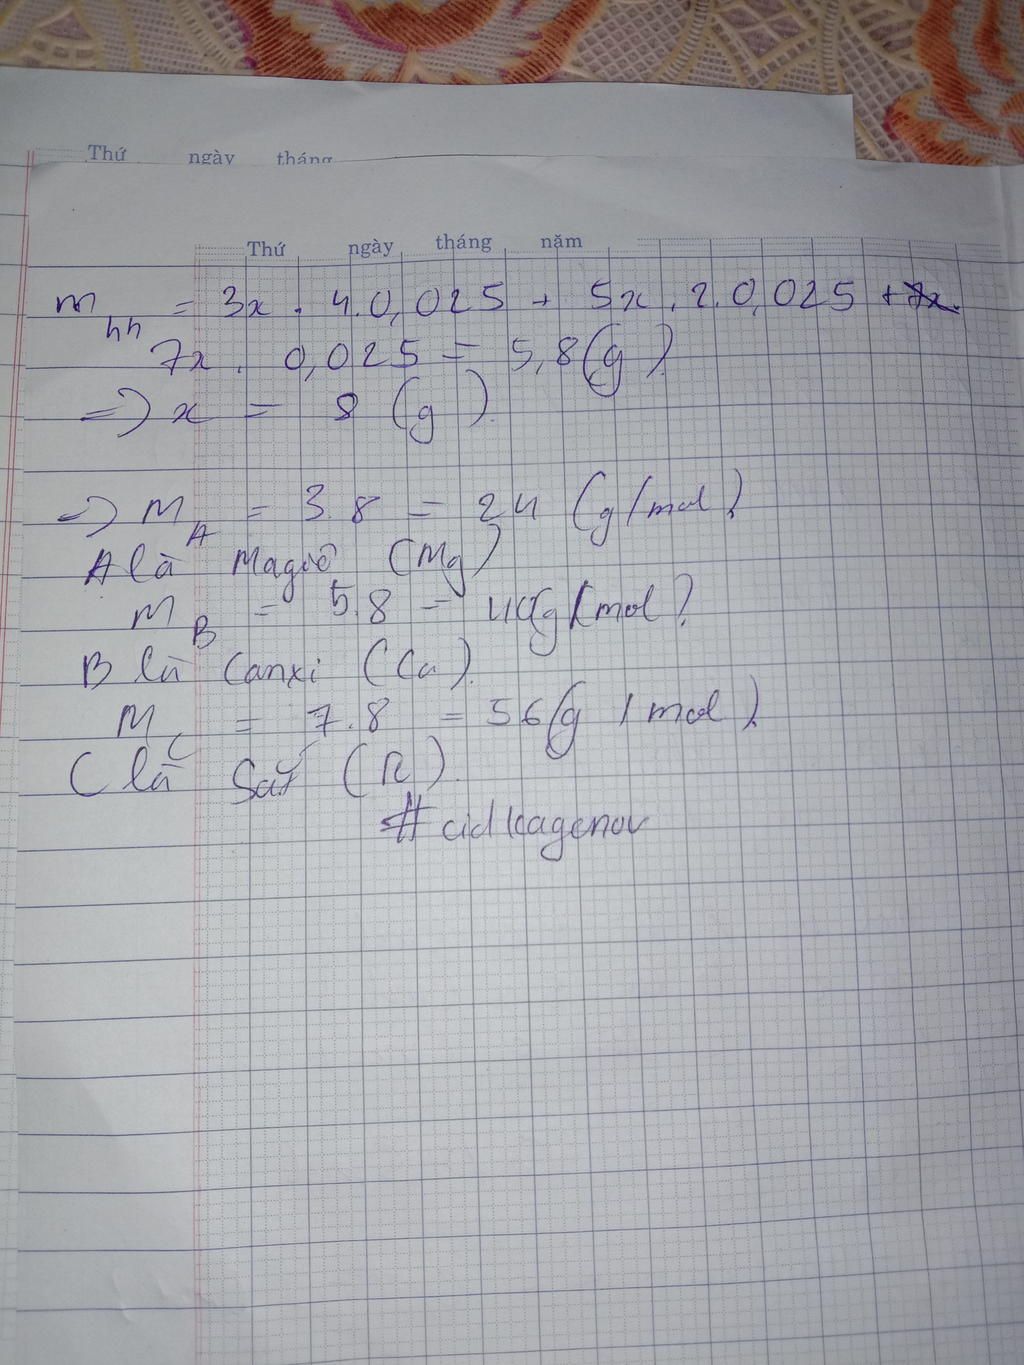 Thứ ngày tháng
Thứ ngày tháng năm
m hh = 3x . 4.0,025 + 5x . 2.0,025 + 7x.
7x . 0,025 = 5,8(g)
=> x = 8 (g).
=> M A = 3.8 = 24 (g/mol)
A là Magiê (Mg)
M B = 5.8 = 40(g/mol)
B là Canxi (Ca).
M C = 7.8 = 56(g/mol)
C là Sắt (Fe).